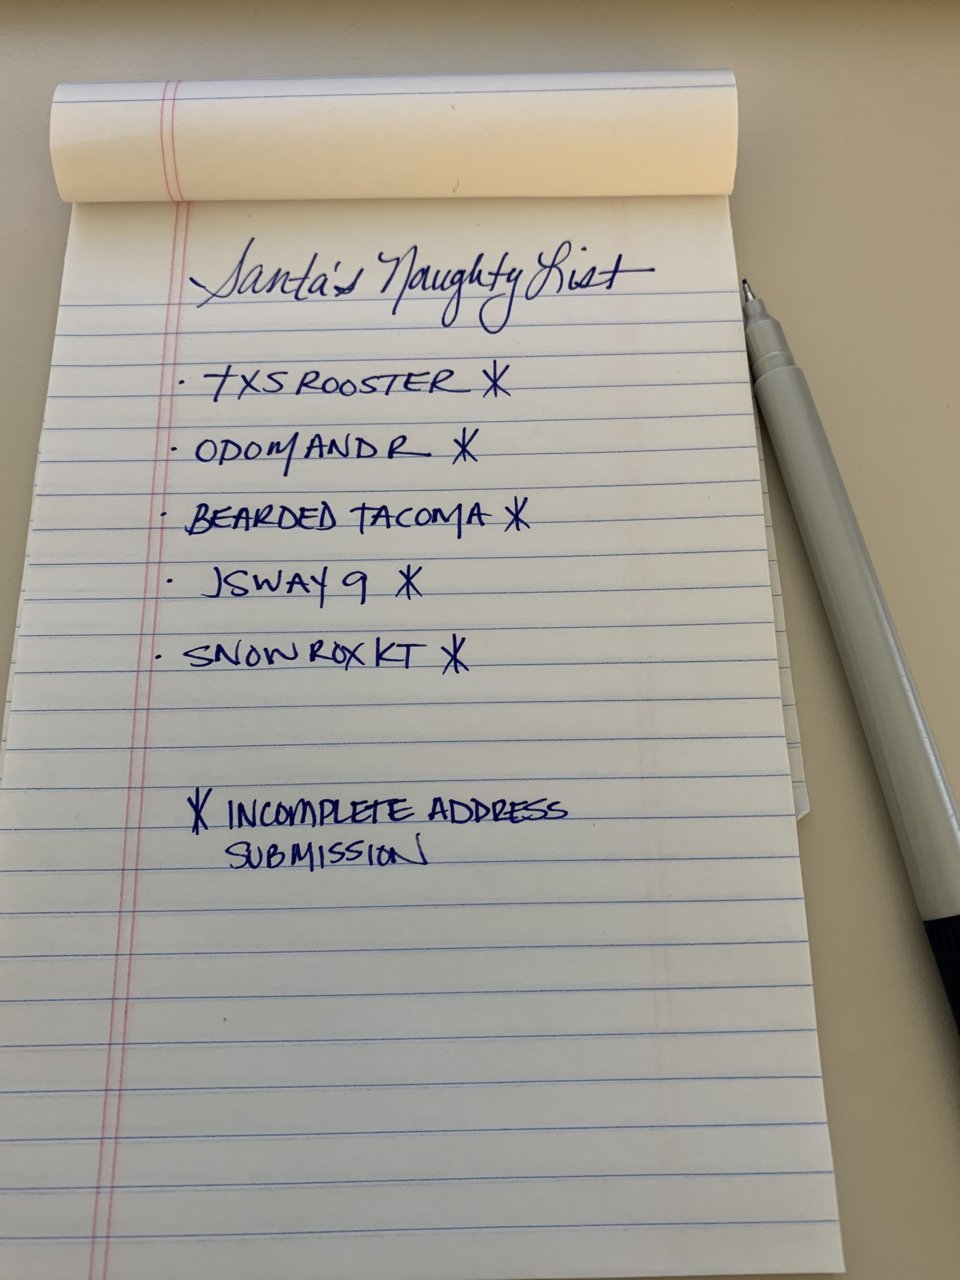 Santa's Naughty List
· TXSROOSTER *
· ODOMANDR *
· BEARDED TACOMA *
· JSWAY9 *
· SNOWROXKT *
* INCOMPLETE ADDRESS
SUBMISSION